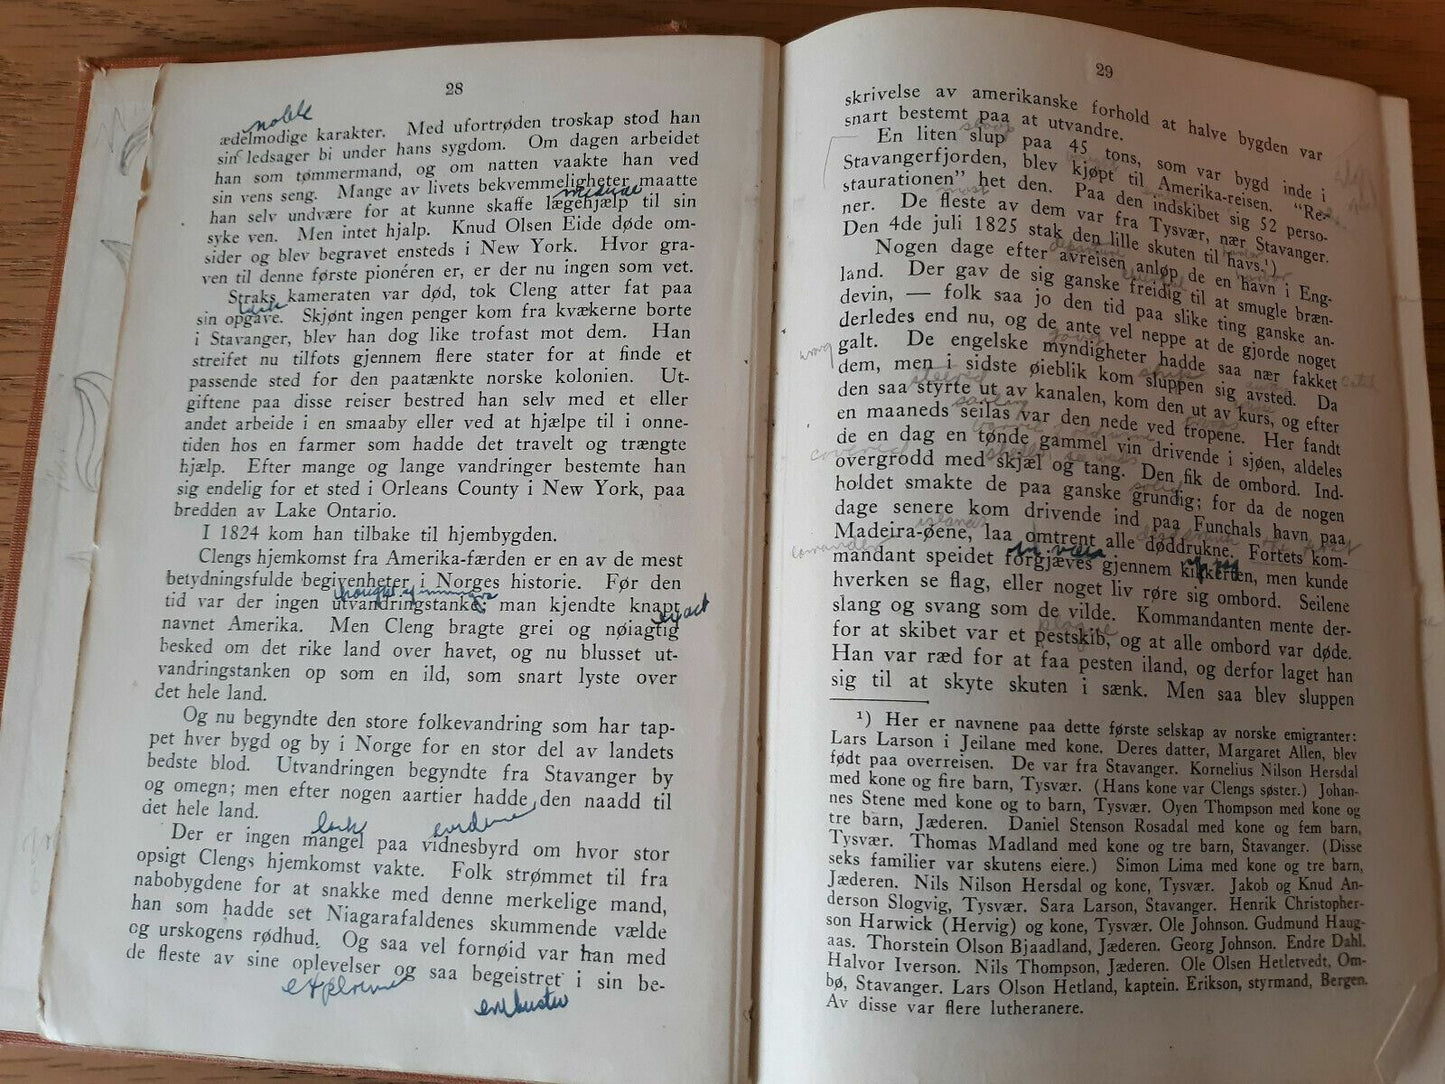 28
noble
ædelmodige karakter. Med ufortrøden troskap stod han
sin ledsager bi under hans sygdom. Om dagen arbeidet
han som tømmermand, og om natten vaakte han ved
sin vens seng. Mange av livets bekvemmeligheter maatte
medicine
han selv undvære for at kunne skaffe lægehjælp til sin
syke ven. Men intet hjalp. Knud Olsen Eide døde om-
sider og blev begravet ensteds i New York. Hvor gra-
ven til denne første pionéren er, er der nu ingen som vet.
Straks kameraten var død, tok Cleng atter fat paa
task
sin opgave. Skjønt ingen penger kom fra kvækerne borte
i Stavanger, blev han dog like trofast mot dem. Han
streifet nu tilfots gjennem flere stater for at finde et
passende sted for den paatænkte norske kolonien. Ut-
giftene paa disse reiser bestred han selv med et eller
andet arbeide i en smaaby eller ved at hjælpe til i onne-
tiden hos en farmer som hadde det travelt og trængte
hjælp. Efter mange og lange vandringer bestemte han
sig endelig for et sted i Orleans County i New York, paa
bredden av Lake Ontario.
I 1824 kom han tilbake til hjembygden.
Clengs hjemkomst fra Amerika-færden er en av de mest
betydningsfulde begivenheter i Norges historie. Før den
thought of
tid var der ingen utvandringstanke; man kjendte knapt
exact
navnet Amerika. Men Cleng bragte grei og nøiagtig
besked om det rike land over havet, og nu blusset ut-
vandringstanken op som en ild, som snart lyste over
det hele land.
Og nu begyndte den store folkevandring som har tap-
pet hver bygd og by i Norge for en stor del av landets
bedste blod. Utvandringen begyndte fra Stavanger by
og omegn; men efter nogen aartier hadde den naadd til
det hele land.
lack evidence
Der er ingen mangel paa vidnesbyrd om hvor stor
opsigt Clengs hjemkomst vakte. Folk strømmet til fra
nabobygdene for at snakke med denne merkelige mand,
han som hadde set Niagarafaldenes skummende vælde
og urskogens rødhud. Og saa vel fornøid var han med
de fleste av sine oplevelser og saa begeistret i sin be-
29
skrivelse av amerikanske forhold at halve bygden var
snart bestemt paa at utvandre.
sloop
En liten slup paa 45 tons, som var bygd inde i
Stavangerfjorden, blev kjøpt til Amerika-reisen. "Re-
staurationen" het den. Paa den indskibet sig 52 perso-
most
ner. De fleste av dem var fra Tysvær, nær Stavanger.
Den 4de juli 1825 stak den lille skuten til havs.¹)
harbor
Nogen dage efter avreisen anløp de en havn i Eng-
land. Der gav de sig ganske freidig til at smugle bræn-
devin, — folk saa jo den tid paa slike ting ganske an-
derledes end nu, og de ante vel neppe at de gjorde noget
wrong
galt. De engelske myndigheter hadde saa nær fakket
dem, men i sidste øieblik kom sluppen sig avsted. Da
den saa styrte ut av kanalen, kom den ut av kurs, og efter
sailing
en maaneds seilas var den nede ved tropene. Her fandt
de en dag en tønde gammel vin drivende i sjøen, aldeles
covered
overgrodd med skjæl og tang. Den fik de ombord. Ind-
solid
holdet smakte de paa ganske grundig; for da de nogen
dage senere kom drivende ind paa Funchals havn paa
islands
Madeira-øene, laa omtrent alle døddrukne. Fortets kom-
commander in vain
mandant speidet forgjæves gjennem kikkerten, men kunde
hverken se flag, eller noget liv røre sig ombord. Seilene
slang og svang som de vilde. Kommandanten mente der-
plague
for at skibet var et pestskib, og at alle ombord var døde.
Han var ræd for at faa pesten iland, og derfor laget han
sig til at skyte skuten i sænk. Men saa blev sluppen
¹) Her er navnene paa dette første selskap av norske emigranter:
Lars Larson i Jeilane med kone. Deres datter, Margaret Allen, blev
født paa overreisen. De var fra Stavanger. Kornelius Nilson Hersdal
med kone og fire barn, Tysvær. (Hans kone var Clengs søster.) Johan-
nes Stene med kone og to barn, Tysvær. Oyen Thompson med kone og
tre barn, Jæderen. Daniel Stenson Rosadal med kone og fem barn,
Tysvær. Thomas Madland med kone og tre barn, Stavanger. (Disse
seks familier var skutens eiere.) Simon Lima med kone og tre barn,
Jæderen. Nils Nilson Hersdal og kone, Tysvær. Jakob og Knud An-
derson Slogvig, Tysvær. Sara Larson, Stavanger. Henrik Christopher-
son Harwick (Hervig) og kone, Tysvær. Ole Johnson. Gudmund Haug-
aas. Thorstein Olson Bjaadland, Jæderen. Georg Johnson. Endre Dahl.
Halvor Iverson. Nils Thompson, Jæderen. Ole Olsen Hetletvedt, Om-
bø, Stavanger. Lars Olson Hetland, kaptein. Erikson, styrmand, Bergen.
Av disse var flere lutheranere.